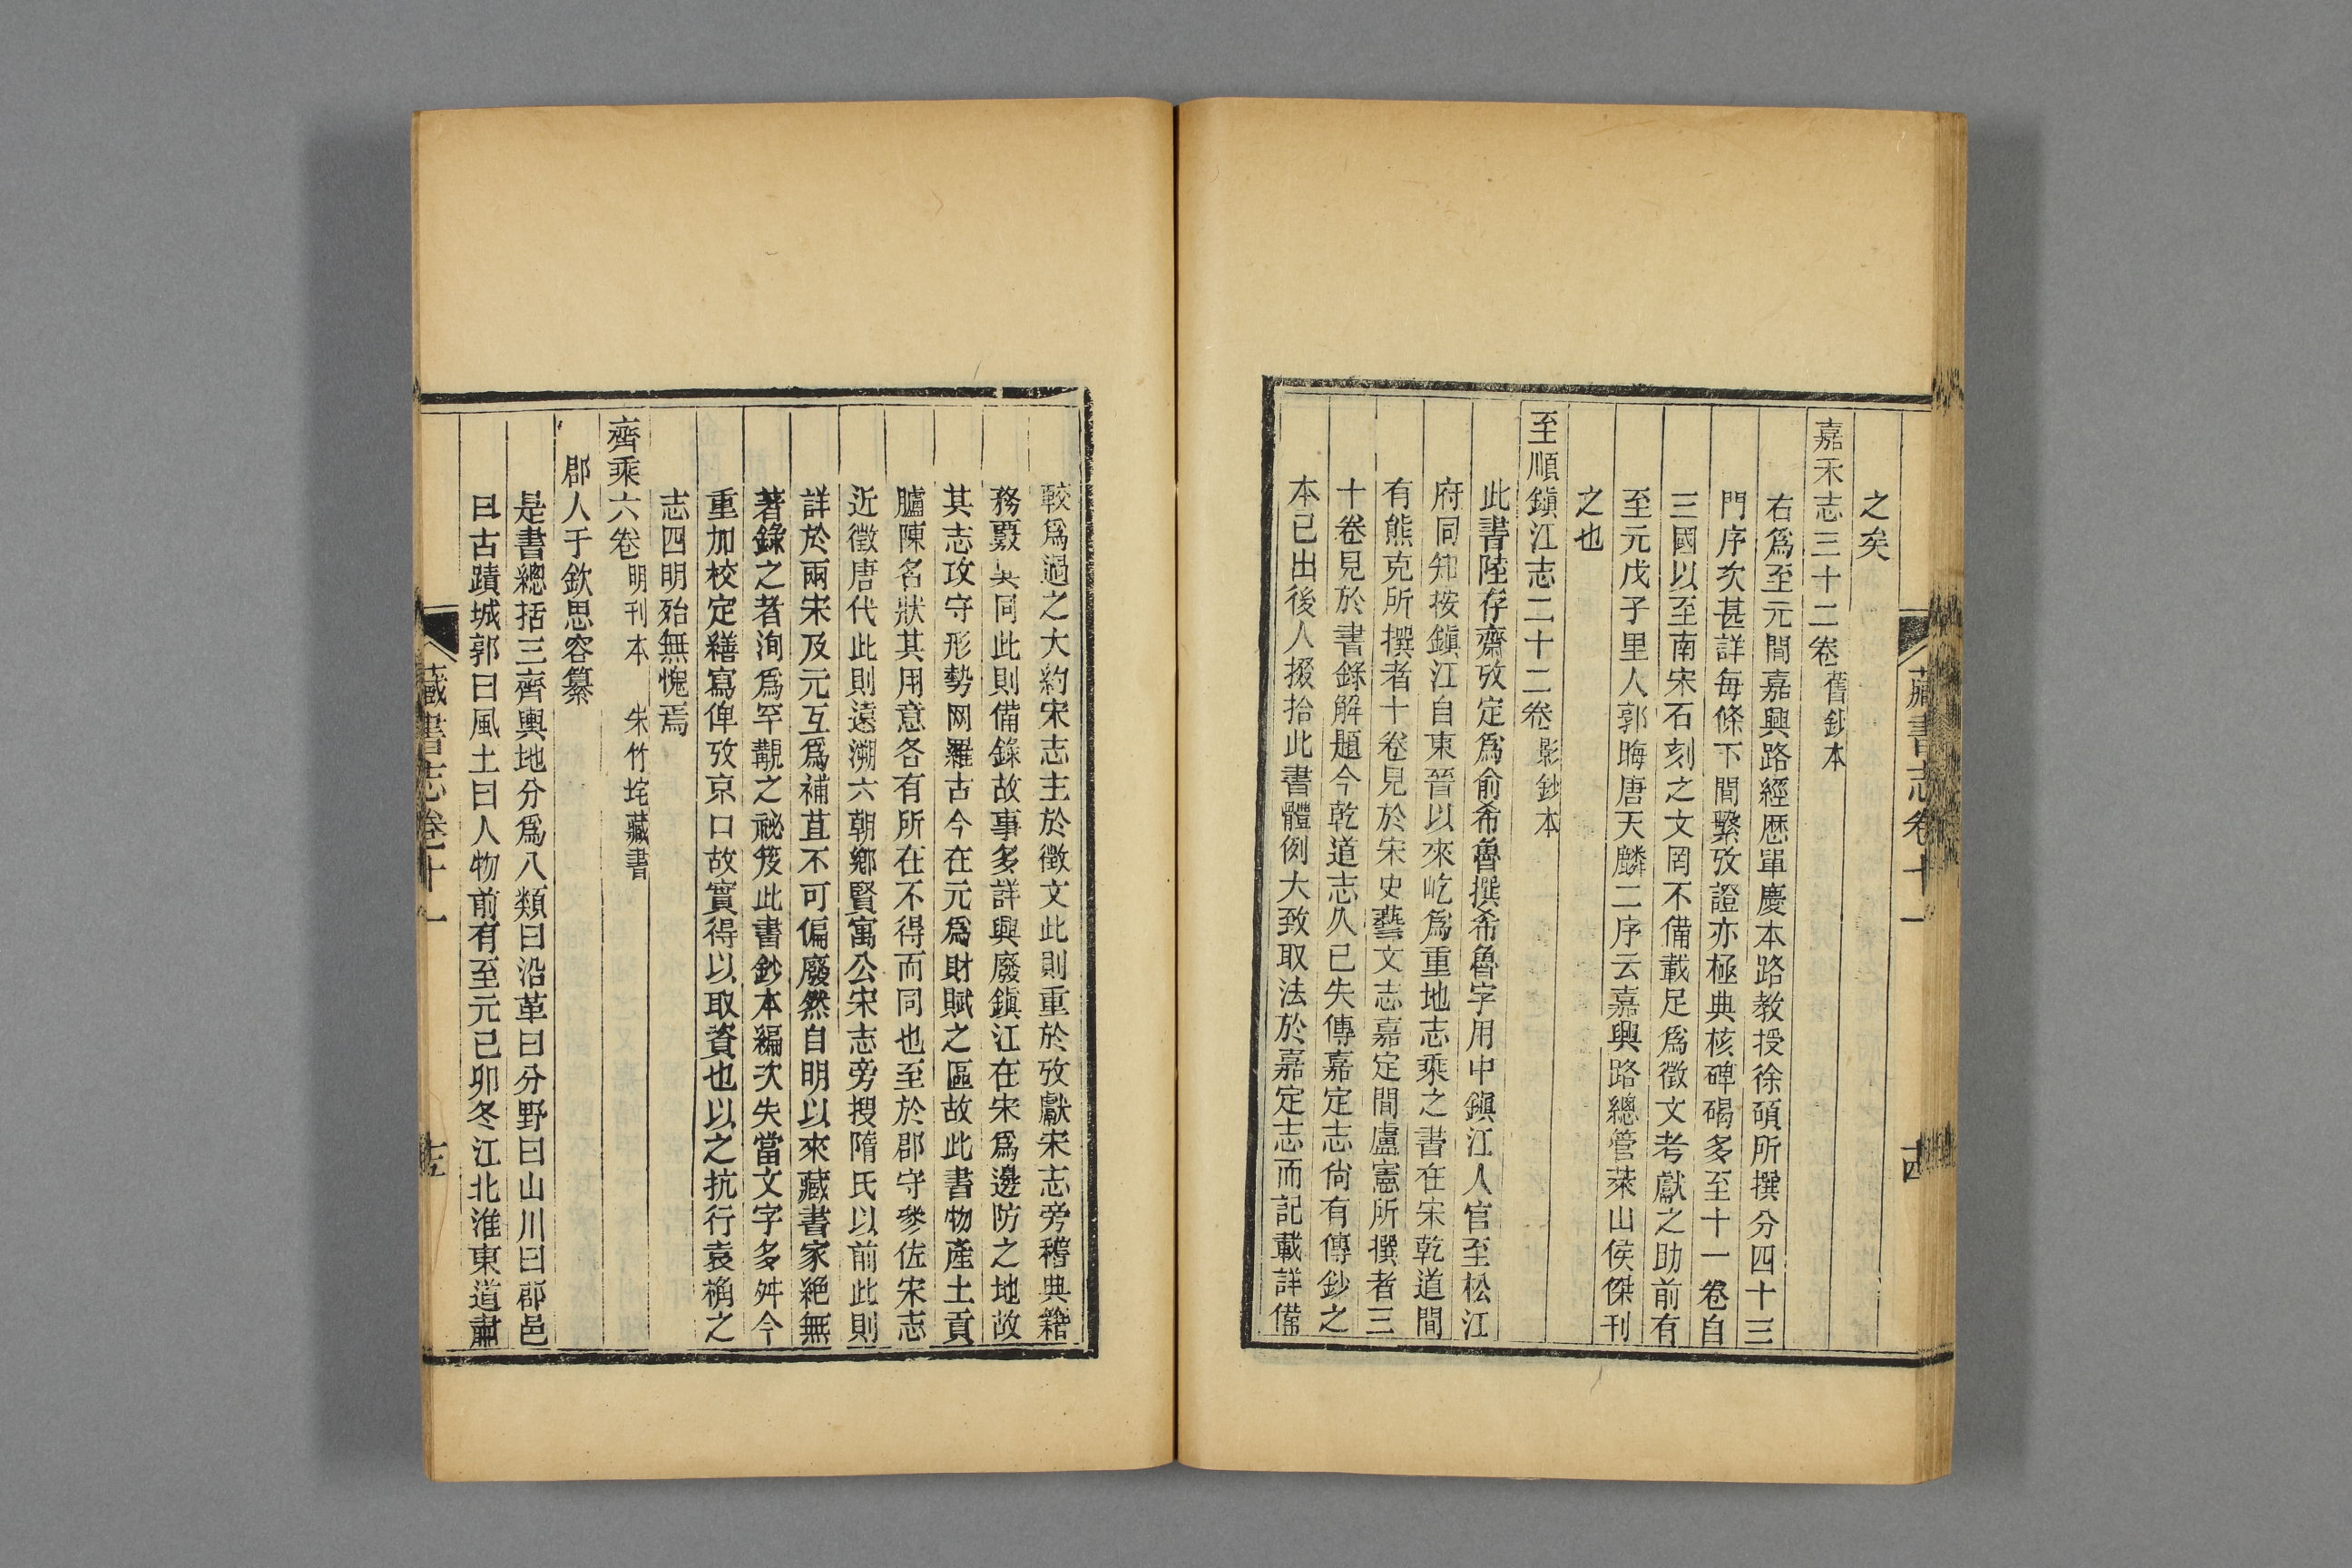 藏書志卷十一
之矣
嘉禾志三十二卷舊鈔本
右爲至元間嘉興路經歷單慶本路教授徐碩所撰分四十三
門序次甚詳每條下間繫攷證亦極典核碑碣多至十一卷自
三國以至南宋石刻之文罔不備載足爲徵文考獻之助前有
至元戊子里人郭晦唐天麟二序云嘉興路總管萊山侯傑刊
之也
至順鎭江志二十二卷影鈔本
此書陸存齋攷定爲俞希魯撰希魯字用中鎭江人官至松江
府同知按鎭江自東晉以來屹爲重地志乘之書在宋乾道間
有熊克所撰者十卷見於宋史藝文志嘉定間盧憲所撰者三
十卷見於書錄解題今乾道志久已失傳嘉定志尙有傳鈔之
本已出後人掇拾此書體例大致取法於嘉定志而記載詳備
較爲過之大約宋志主於徵文此則重於攷獻宋志旁稽典籍
務覈異同此則備錄故事多詳興廢鎭江在宋爲邊防之地故
其志攻守形勢网羅古今在元爲財賦之區故此書物產土貢
臚陳名狀其用意各有所在不得而同也至於郡守參佐宋志
近徵唐代此則遠溯六朝鄉賢寓公宋志旁搜隋氏以前此則
詳於兩宋及元互爲補苴不可偏廢然自明以來藏書家絕無
著錄之者洵爲罕覯之祕笈此書鈔本編次失當文字多舛今
重加校定繕寫俾攷京口故實得以取資也以之抗行袁桷之
志四明殆無愧焉
齊乘六卷明刊本 朱竹垞藏書
郡人于欽思容纂
是書總括三齊輿地分爲八類曰沿革曰分野曰山川曰郡邑
曰古蹟城郭曰風土曰人物前有至元己卯冬江北淮東道肅
藏書志卷十一